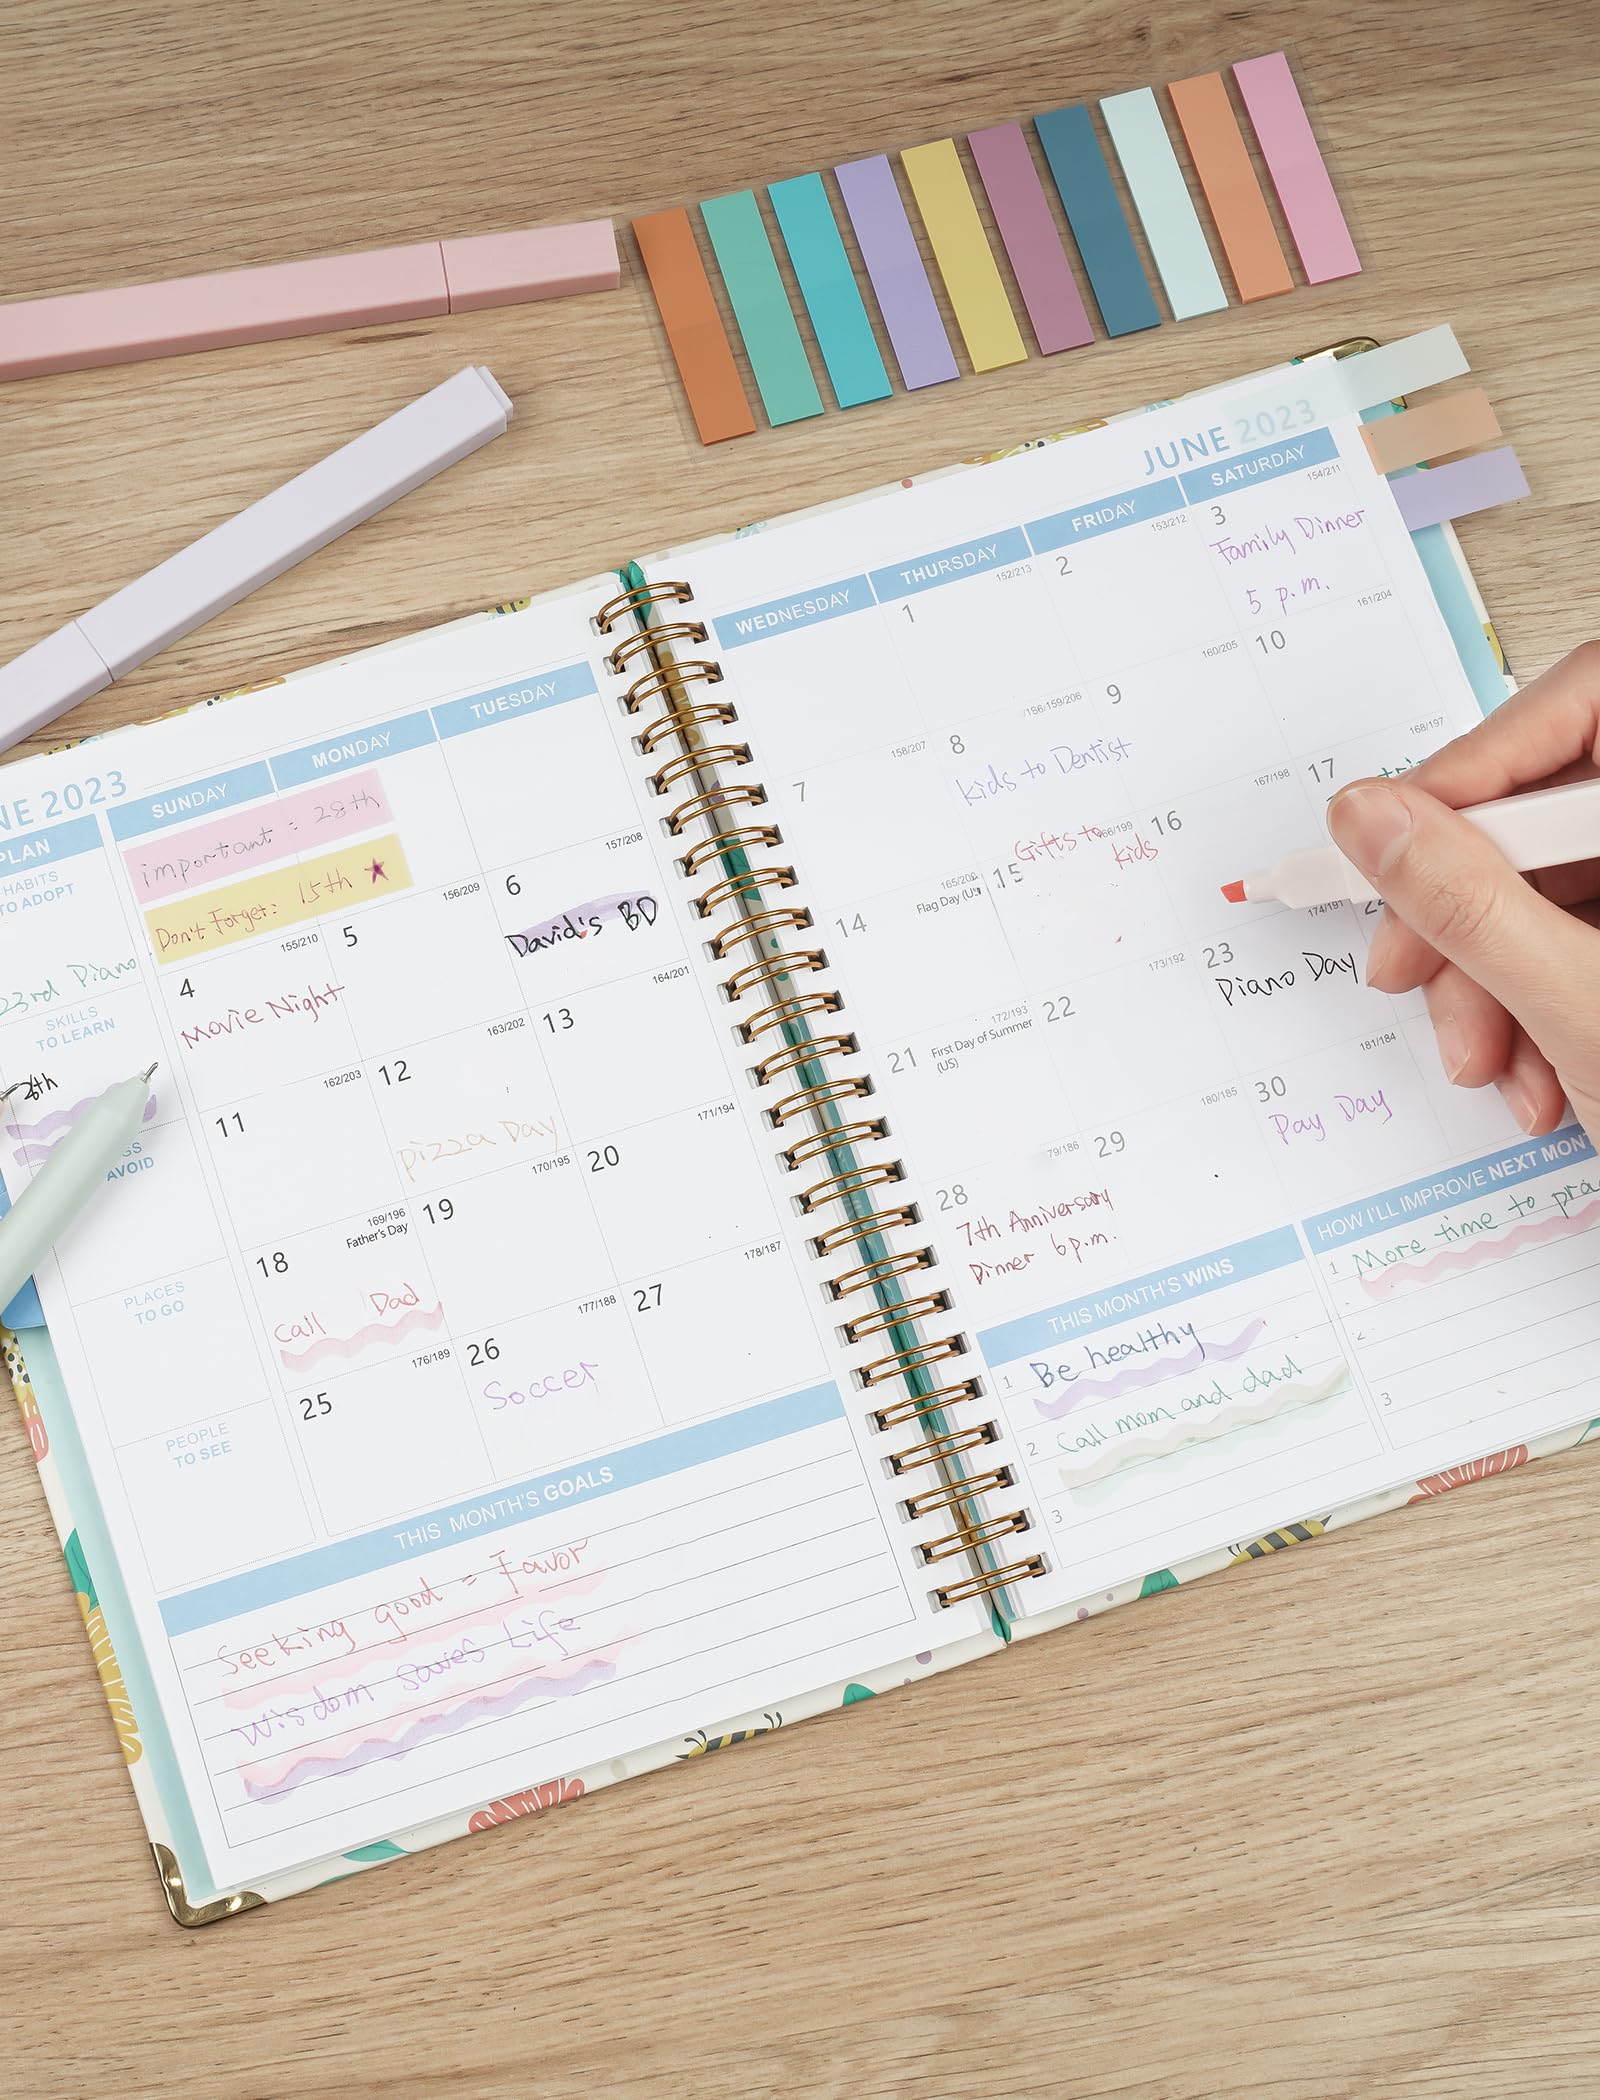 NE 2023
PLAN
HABITS
TO ADOPT
23rd Piano
SKILLS
TO LEARN
26th
AVOID
PLACES
TO GO
PEOPLE
TO SEE
SUNDAY
MONDAY
TUESDAY
important : 28th
Don't Forget: 15th ★
155/210
156/209
157/208
4
Movie Night
5
6
David's BD
162/203
163/202
164/201
11
12
pizza Day
13
169/196
Father's Day
170/195
171/194
18
Call Dad
19
20
176/189
177/188
178/187
25
26
Soccer
27
THIS MONTH'S GOALS
Seeking good = Favor
Wisdom saves Life
JUNE 2023
WEDNESDAY
THURSDAY
FRIDAY
SATURDAY
152/213
153/212
154/211
1
2
3
Family Dinner
5 p.m.
158/207
159/206
160/205
161/204
7
8
kids to Dentist
9
10
Flag Day
166/199
167/198
168/197
14
15
Gifts to
kids
16
17
172/193
First Day of Summer
(US)
173/192
174/191
21
22
23
Piano Day
24
79/186
180/185
181/184
28
7th Anniversary
Dinner 6p.m.
29
30
Pay Day
THIS MONTH'S WINS
1 Be healthy
2 Call mom and dad
3
HOW I'LL IMPROVE NEXT MONT
1 More time to prac
2
3